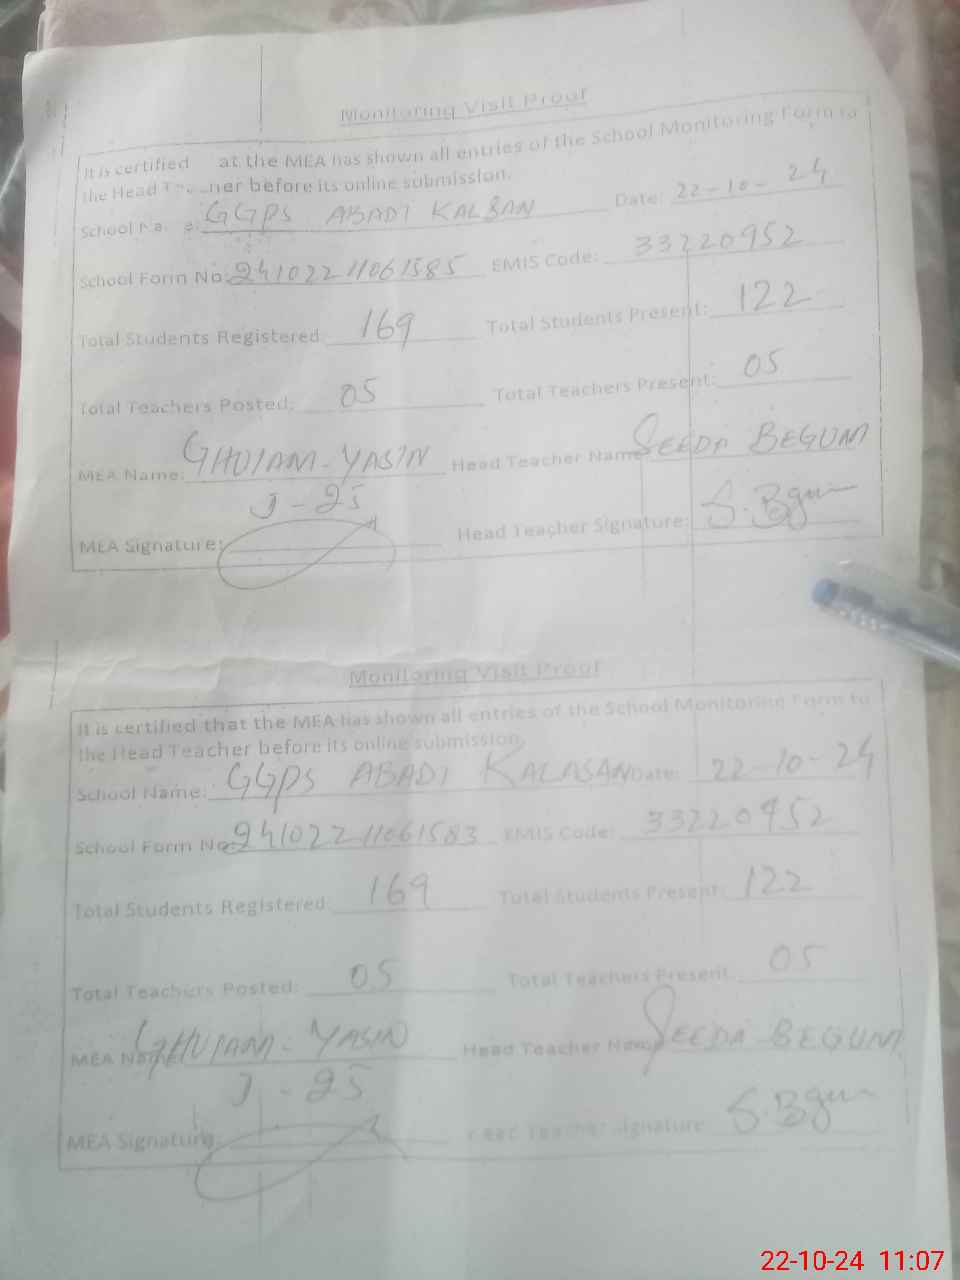 Monitoring Visit Proof
It is certified at the MEA has shown all entries of the School Monitoring Form to
the Head Teacher before its online submission.
School Na e: GGPS ABADI KALSAN Date: 22-10-24
School Form No: 24102211061585 EMIS Code: 33220952
Total Students Registered: 169 Total Students Present: 122
Total Teachers Posted: 05 Total Teachers Present: 05
MEA Name: GHULAM-YASIN Head Teacher Name: SEEDA BEGUM
J-25
MEA Signature: Head Teacher Signature: S.Bgum
Monitoring Visit Proof
It is certified that the MEA has shown all entries of the School Monitoring Form to
the Head Teacher before its online submission.
School Name: GGPS ABADI KALASAN Date: 22-10-24
School Form No: 24102211061583 EMIS Code: 33220952
Total Students Registered: 169 Total Students Present: 122
Total Teachers Posted: 05 Total Teachers Present: 05
MEA Name: GHULAM-YASIN Head Teacher Name: SEEDA BEGUM
J-25
MEA Signature: Head Teacher Signature: S.Bgum
22-10-24 11:07